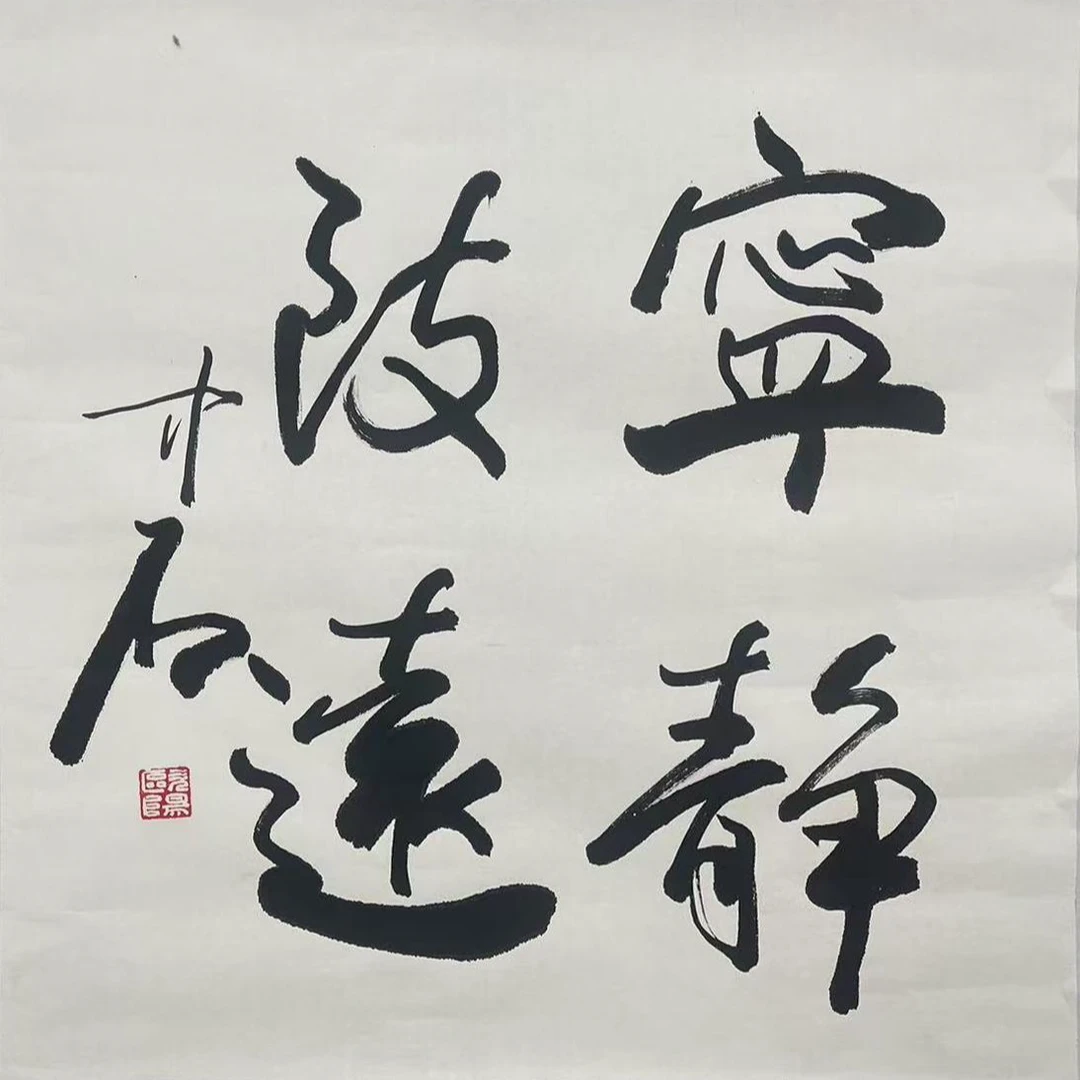 寧靜
致遠
中石